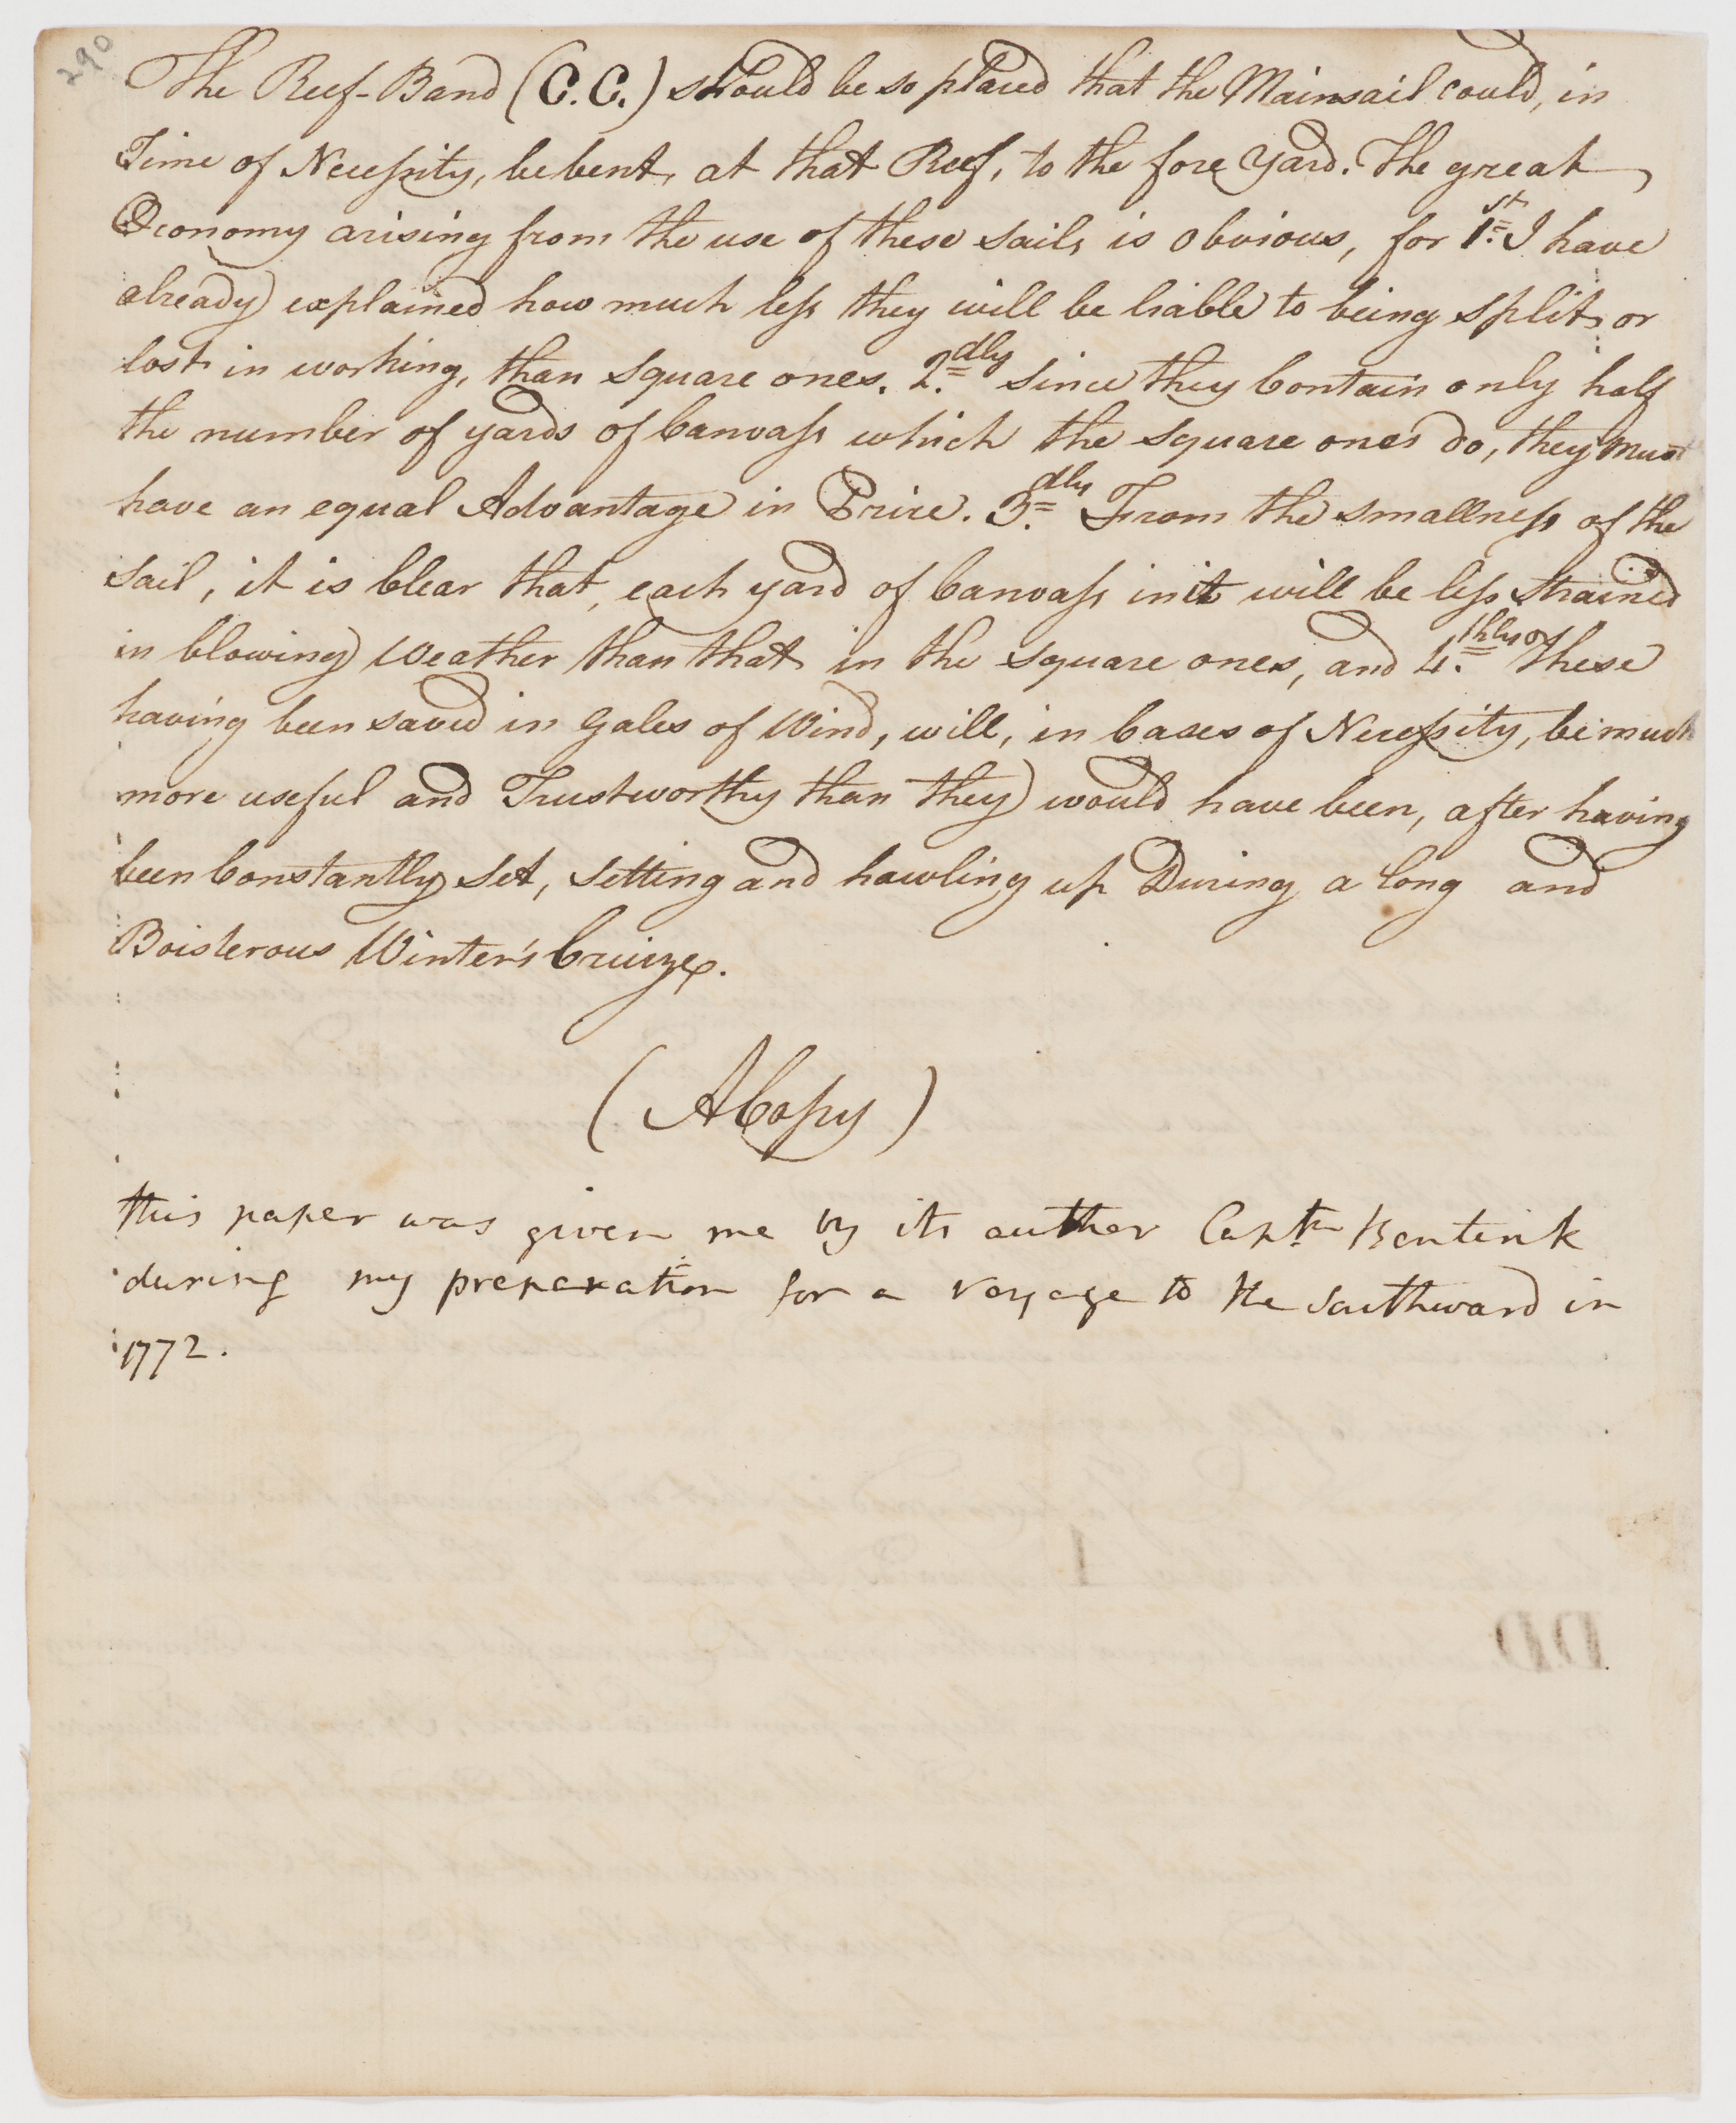 290
The Reef-Band (C.C.) should be so placed that the Mainsail could, in
Time of Necessity, be bent, at that Reef, to the fore Yard. The great
Œconomy arising from the use of these sails is obvious, for 1.st I have
already explained how much less they will be liable to being split or
lost in working, than square ones. 2.dly since they Contain only half
the number of yards of Canvass which the square ones do, they must
have an equal Advantage in Price. 3.dly From the smallness of the
sail, it is Clear that, each yard of Canvass in it will be less strained
in blowing Weather than that in the square ones, and 4.thly These
having been saved in Gales of Wind, will, in Cases of Necessity, be much
more useful and Trustworthy than they would have been, after having
been Constantly set, setting and hawling up During a long and
Boisterous Winter's Cruize.
(A Copy)
this paper was given me by its auther Captn Bentink
during my preparation for a voyage to the Southward in
1772.